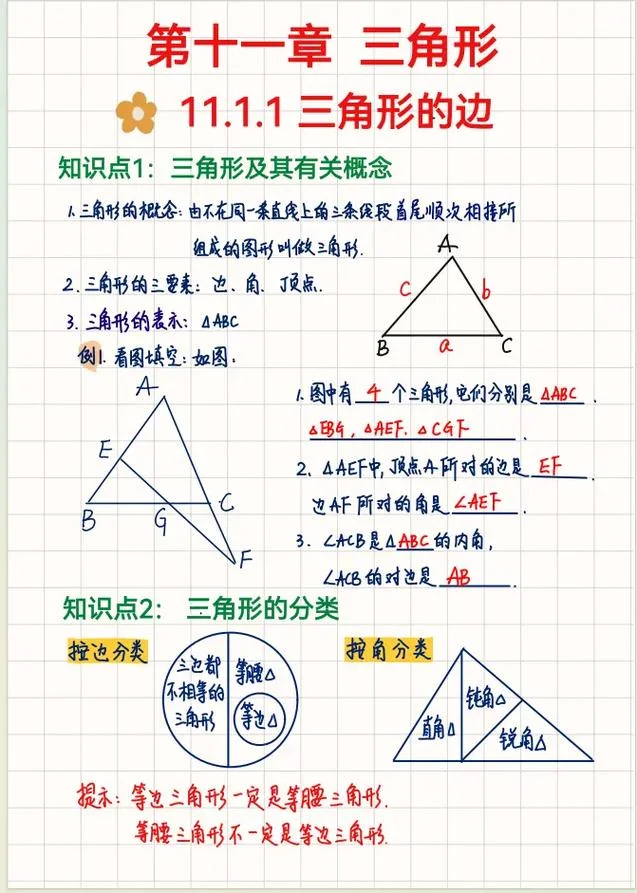 第十一章 三角形
11.1.1 三角形的边
知识点1：三角形及其有关概念
1.三角形的概念：由不在同一条直线上的三条线段首尾顺次相接所
组成的图形叫做三角形.
2.三角形的三要素：边、角、顶点.
3.三角形的表示：△ABC
A
c
b
B
a
C
例1.看图填空：如图.
A
E
B
G
C
F
1.图中有 4 个三角形,它们分别是 △ABC .
△EBG, △AEF. △CGF .
2. △AEF中,顶点A所对的边是 EF .
边AF所对的角是 ∠AEF .
3. ∠ACB是△ABC的内角,
∠ACB的对边是 AB .
知识点2： 三角形的分类
按边分类
三边都
不相等的
三角形
等腰△
等边△
按角分类
直角△
钝角△
锐角△
提示：等边三角形一定是等腰三角形.
等腰三角形不一定是等边三角形.